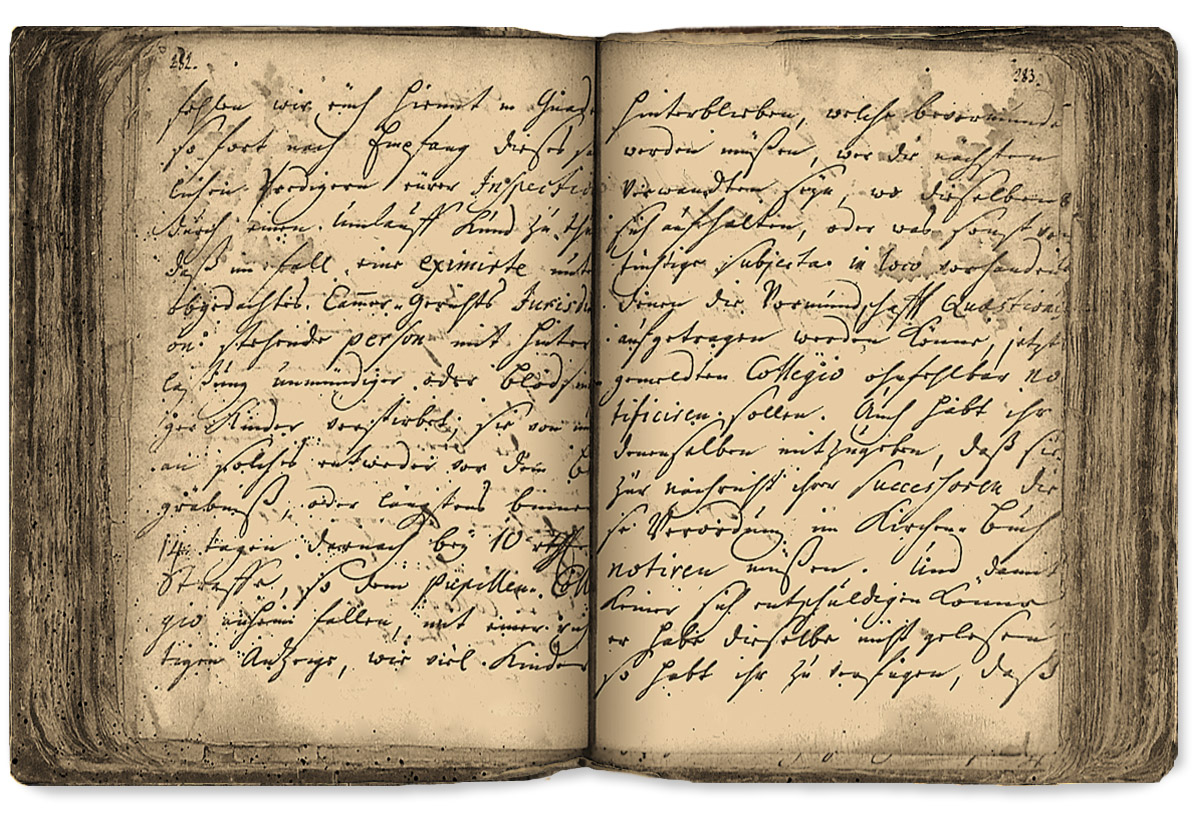 282.
fehlen wir euch hiemit in Gnade
so fort nach Empfang dieses
lichen Predigern eurer Inspectio
durch einen Umlauff Kund zu thu
daß im fall eine eximirte unte
obgedachtes Camer-Gerichts Jurisdi
on stehende person mit Hinter
laßung unmündiger oder blödsin
iger Kinder verstirbet, sie von
an solches entweder vor dem Be
gräbniß, oder längstens binnen
14. tagen darnach bey 10
Straffe, so dem pupillen Colle
gio anheim fallen, mit einer rich
tigen Anzeige, wie viel Kinder
283.
hinterblieben, welche bevormundet
werden müßen, wer die nächsten
Verwandten seyn, wo dieselben
sich aufhalten, oder was sonst vor
tüchtige subjecta in loco vorhanden
denen die Vormundschafft quaestionis
aufgetragen werden könne, jetzt
gemeldten Collegio ohnfehlbar no
tificiren sollen. Auch habt ihr
denenselben mitzugeben, daß sie
zur nachricht ihrer Successoren die
se Verordnung im Kirchen-Buch
notiren müßen. Und damit
keiner sich entschuldigen könne
er habe dieselbe nicht gelesen
so habt ihr zu verfügen, daß